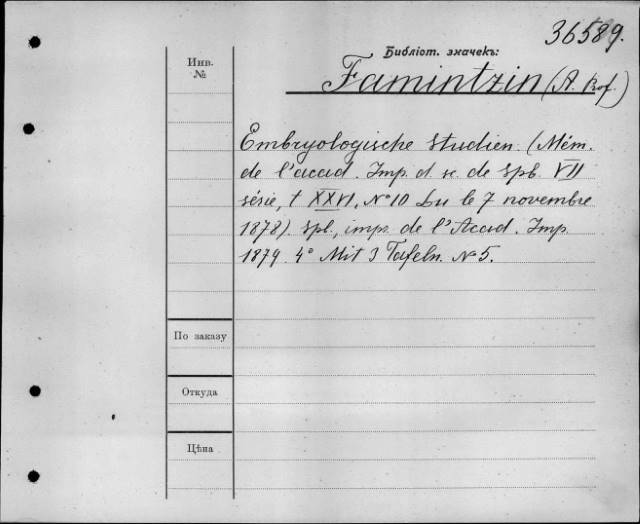 36589.
Библіот. значекъ:
Инв.
№
Famintzin (A. Prof.)
Embryologische Studien. (Mém.
de l'acad. Imp. d. sc. de Spb. VII
série, t XXVI, No 10 Lu le 7 novembre
1878). Spb., impr. de l'Acad. Imp.
1879. 4° Mit 3 Tafeln. No 5.
По заказу
Откуда
Цѣна